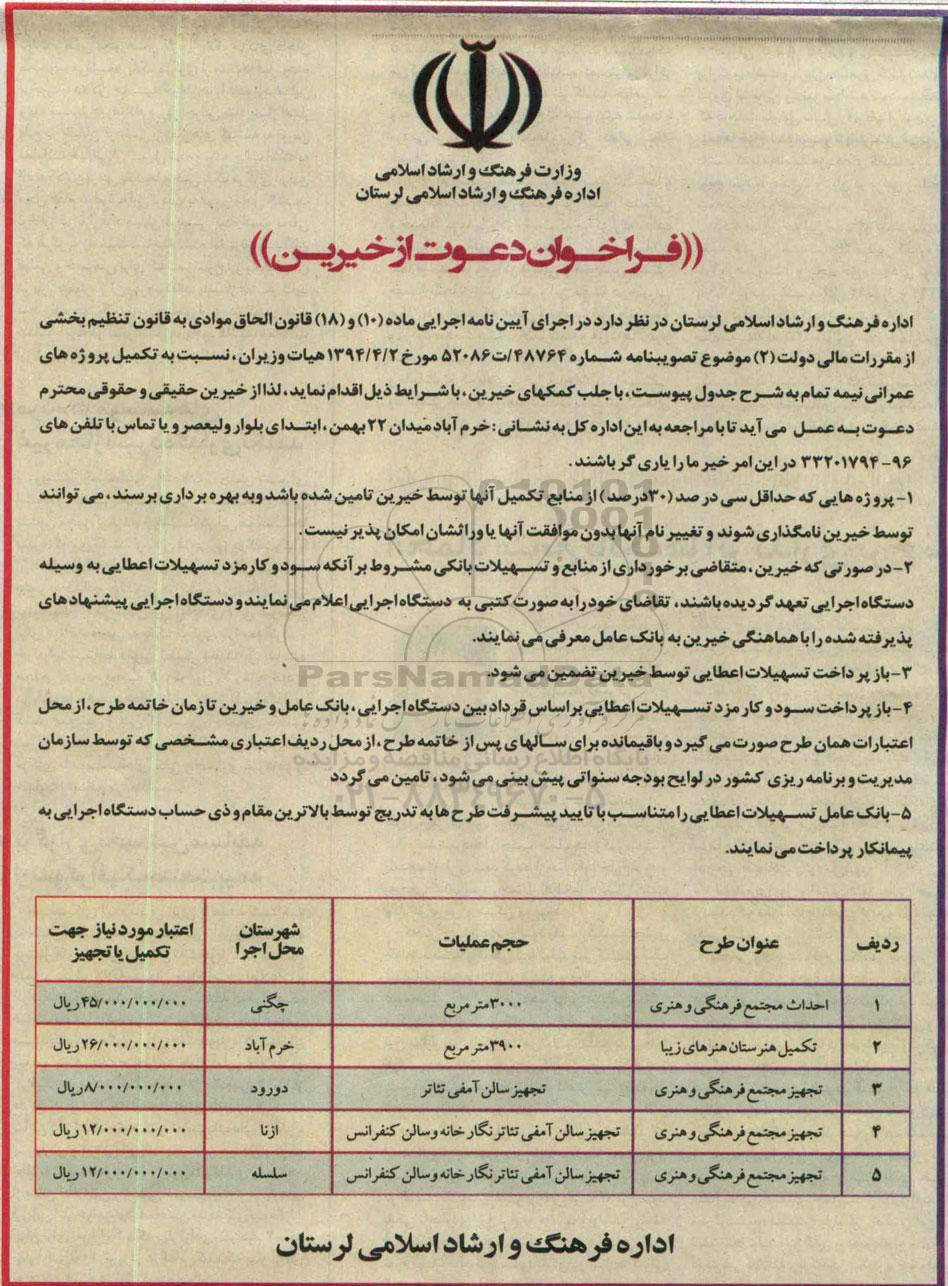 وزارت فرهنگ و ارشاد اسلامی
اداره فرهنگ و ارشاد اسلامی لرستان
((فراخوان دعوت از خیرین))
اداره فرهنگ و ارشاد اسلامی لرستان در نظر دارد در اجرای آیین نامه اجرایی ماده (۱۰) و (۱۸) قانون الحاق موادی به قانون تنظیم بخشی
از مقررات مالی دولت (۲) موضوع تصویبنامه شماره ۴۸۷۶۴/ت۵۲۰۸۶ مورخ ۱۳۹۴/۴/۲ هیات وزیران، نسبت به تکمیل پروژه های
عمرانی نیمه تمام به شرح جدول پیوست، با جلب کمکهای خیرین، با شرایط ذیل اقدام نماید، لذا از خیرین حقیقی و حقوقی محترم
دعوت به عمل می آید تا با مراجعه به این اداره کل به نشانی: خرم آباد میدان ۲۲ بهمن، ابتدای بلوار ولیعصر و یا تماس با تلفن های
۹۶-۳۳۲۰۱۷۹۴ در این امر خیر ما را یاری گر باشند.
۱- پروژه هایی که حداقل سی در صد (۳۰درصد) از منابع تکمیل آنها توسط خیرین تامین شده باشد وبه بهره برداری برسند، می توانند
توسط خیرین نامگذاری شوند و تغییر نام آنها بدون موافقت آنها یا وراثشان امکان پذیر نیست.
۲- در صورتی که خیرین، متقاضی برخورداری از منابع و تسهیلات بانکی مشروط بر آنکه سود و کارمزد تسهیلات اعطایی به وسیله
دستگاه اجرایی تعهد گردیده باشند، تقاضای خود را به صورت کتبی به دستگاه اجرایی اعلام می نمایند و دستگاه اجرایی پیشنهادهای
پذیرفته شده را با هماهنگی خیرین به بانک عامل معرفی می نمایند.
۳- باز پرداخت تسهیلات اعطایی توسط خیرین تضمین می شود.
۴- باز پرداخت سود و کارمزد تسهیلات اعطایی براساس قرداد بین دستگاه اجرایی، بانک عامل و خیرین تا زمان خاتمه طرح، از محل
اعتبارات همان طرح صورت می گیرد و باقیمانده برای سالهای پس از خاتمه طرح، از محل ردیف اعتباری مشخصی که توسط سازمان
مدیریت و برنامه ریزی کشور در لوایح بودجه سنواتی پیش بینی می شود، تامین می گردد
۵- بانک عامل تسهیلات اعطایی را متناسب با تایید پیشرفت طرح ها به تدریج توسط بالاترین مقام و ذی حساب دستگاه اجرایی به
پیمانکار پرداخت می نمایند.
ردیف عنوان طرح حجم عملیات شهرستان محل اجرا اعتبار مورد نیاز جهت تکمیل یا تجهیز
۱ احداث مجتمع فرهنگی و هنری ۳۰۰۰متر مربع چگنی ۴۵/۰۰۰/۰۰۰/۰۰۰ریال
۲ تکمیل هنرستان هنرهای زیبا ۳۹۰۰متر مربع خرم آباد ۲۶/۰۰۰/۰۰۰/۰۰۰ریال
۳ تجهیز مجتمع فرهنگی و هنری تجهیز سالن آمفی تئاتر دورود ۸/۰۰۰/۰۰۰/۰۰۰ریال
۴ تجهیز مجتمع فرهنگی و هنری تجهیز سالن آمفی تئاتر نگارخانه و سالن کنفرانس ازنا ۱۲/۰۰۰/۰۰۰/۰۰۰ریال
۵ تجهیز مجتمع فرهنگی و هنری تجهیز سالن آمفی تئاتر نگارخانه و سالن کنفرانس سلسله ۱۲/۰۰۰/۰۰۰/۰۰۰ریال
اداره فرهنگ و ارشاد اسلامی لرستان
ParsNamadData
پایگاه اطلاع رسانی مناقصه و مزایده